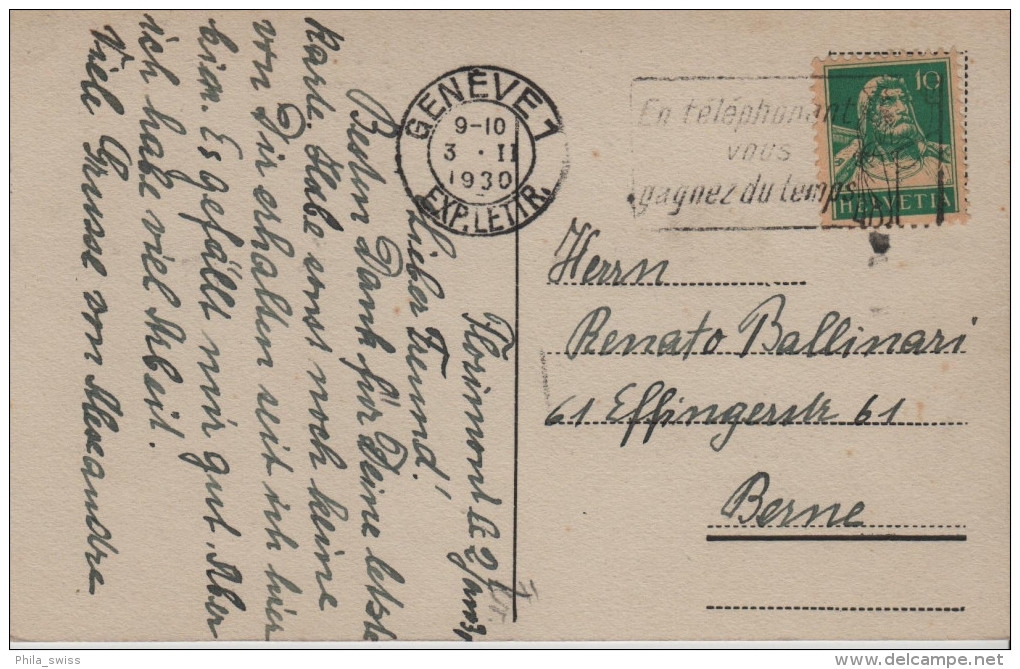 Florimont
Lieber Freund!
Besten Dank für Deine letzte
Karte. Habe sonst noch keine
von Dir erhalten seit ich hier
bin. Es gefällt mir gut. Aber
ich habe viel Arbeit.
Viele Grüsse von Alexandre
GENÈVE 1
9-10
3 · II
1930
EXP. LETTR.
En téléphonant
vous
gagnez du temps
10
HELVETIA
Herrn
Renato Ballinari
61 Effingerstr 61
Berne
Phila_swiss